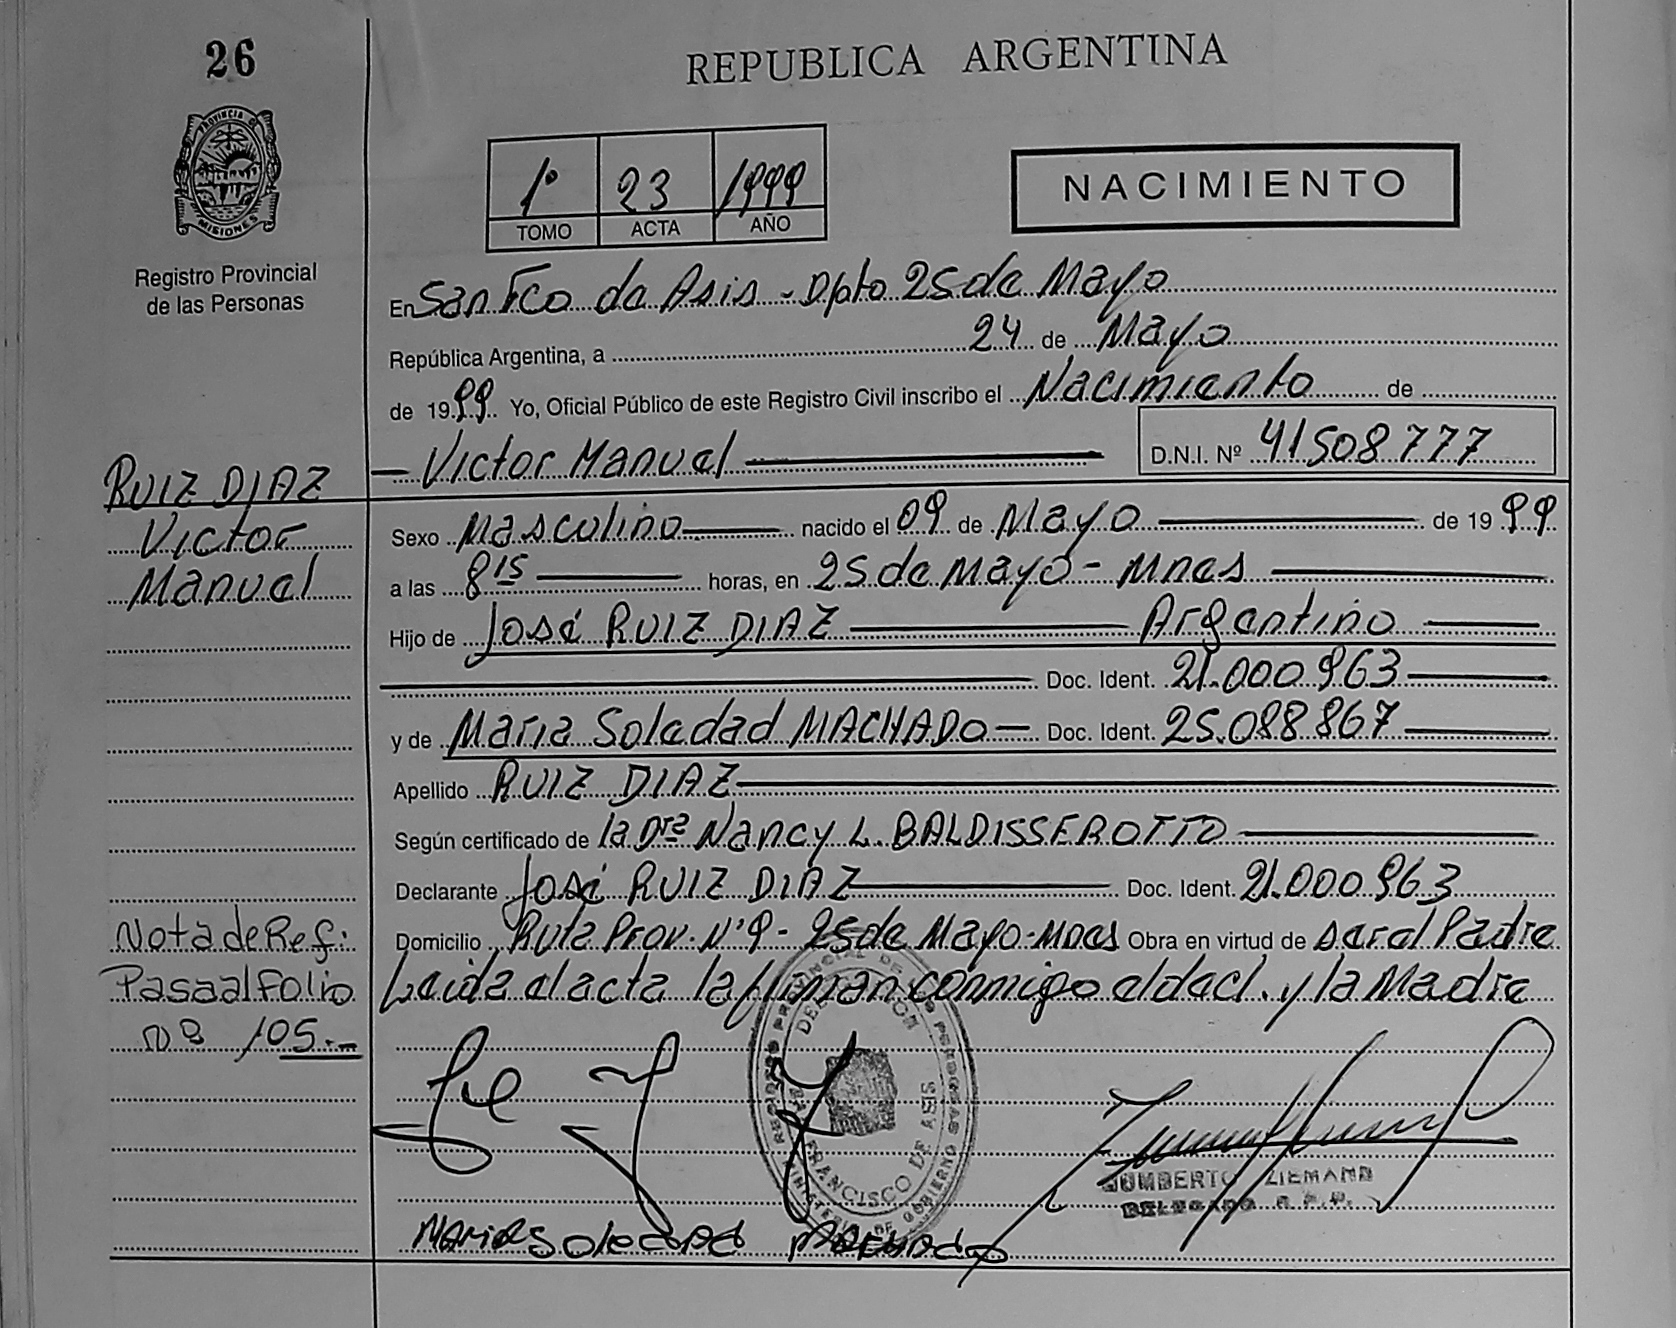 26
REPUBLICA ARGENTINA
PROVINCIA DE
MISIONES
Registro Provincial
de las Personas
1º 23 1999
TOMO ACTA AÑO
NACIMIENTO
En San Fco de Asis - Dpto 25 de Mayo
República Argentina, a 24 de Mayo
de 1999 Yo, Oficial Público de este Registro Civil inscribo el Nacimiento de
Victor Manuel D.N.I. Nº 41508777
RUIZ DIAZ
Victor
Manuel
Sexo Masculino nacido el 09 de Mayo de 1999
a las 8 15 horas, en 25 de Mayo - Mnes
Hijo de José RUIZ DIAZ Argentino
Doc. Ident. 21.000.963
y de Maria Soledad MACHADO Doc. Ident. 25.088.867
Apellido RUIZ DIAZ
Según certificado de la Dra Nancy L. BALDISSEROTTO
Declarante José RUIZ DIAZ Doc. Ident. 21.000.963
Domicilio Ruta Prov. Nº 9 - 25 de Mayo - Mnes Obra en virtud de ser el Padre
Leida el acta la firman conmigo el decl. y la Madre
Nota de Ref:
Pasa al Folio
Nº 105.-
FRANCISCO DE ASIS
HUMBERTO ZIEMANN
DELEGADO R.P.P.
Maria Soledad Machado